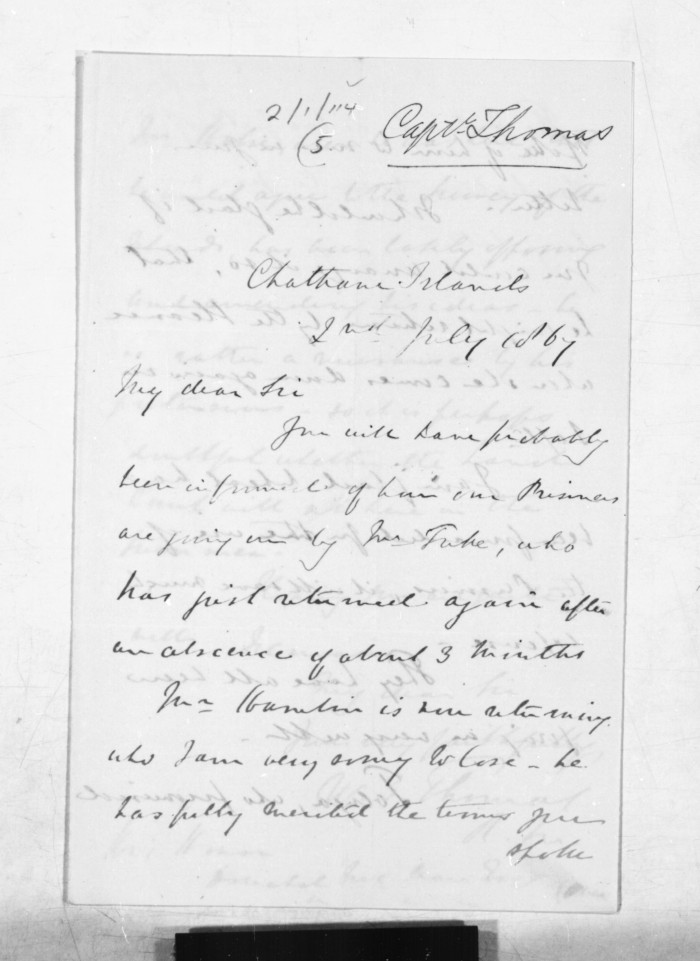 2/1/114
(5
Captn Thomas
Chatham Islands
2nd July 1867
My dear Sir
You will have probably
been informed of how our Prisoners
are going on by Mr Tuke, who
has just returned again after
an absence of about 3 months
Mr Hamlin is now returning
who I am very sorry to lose - he
has fully merited the terms you
spoke